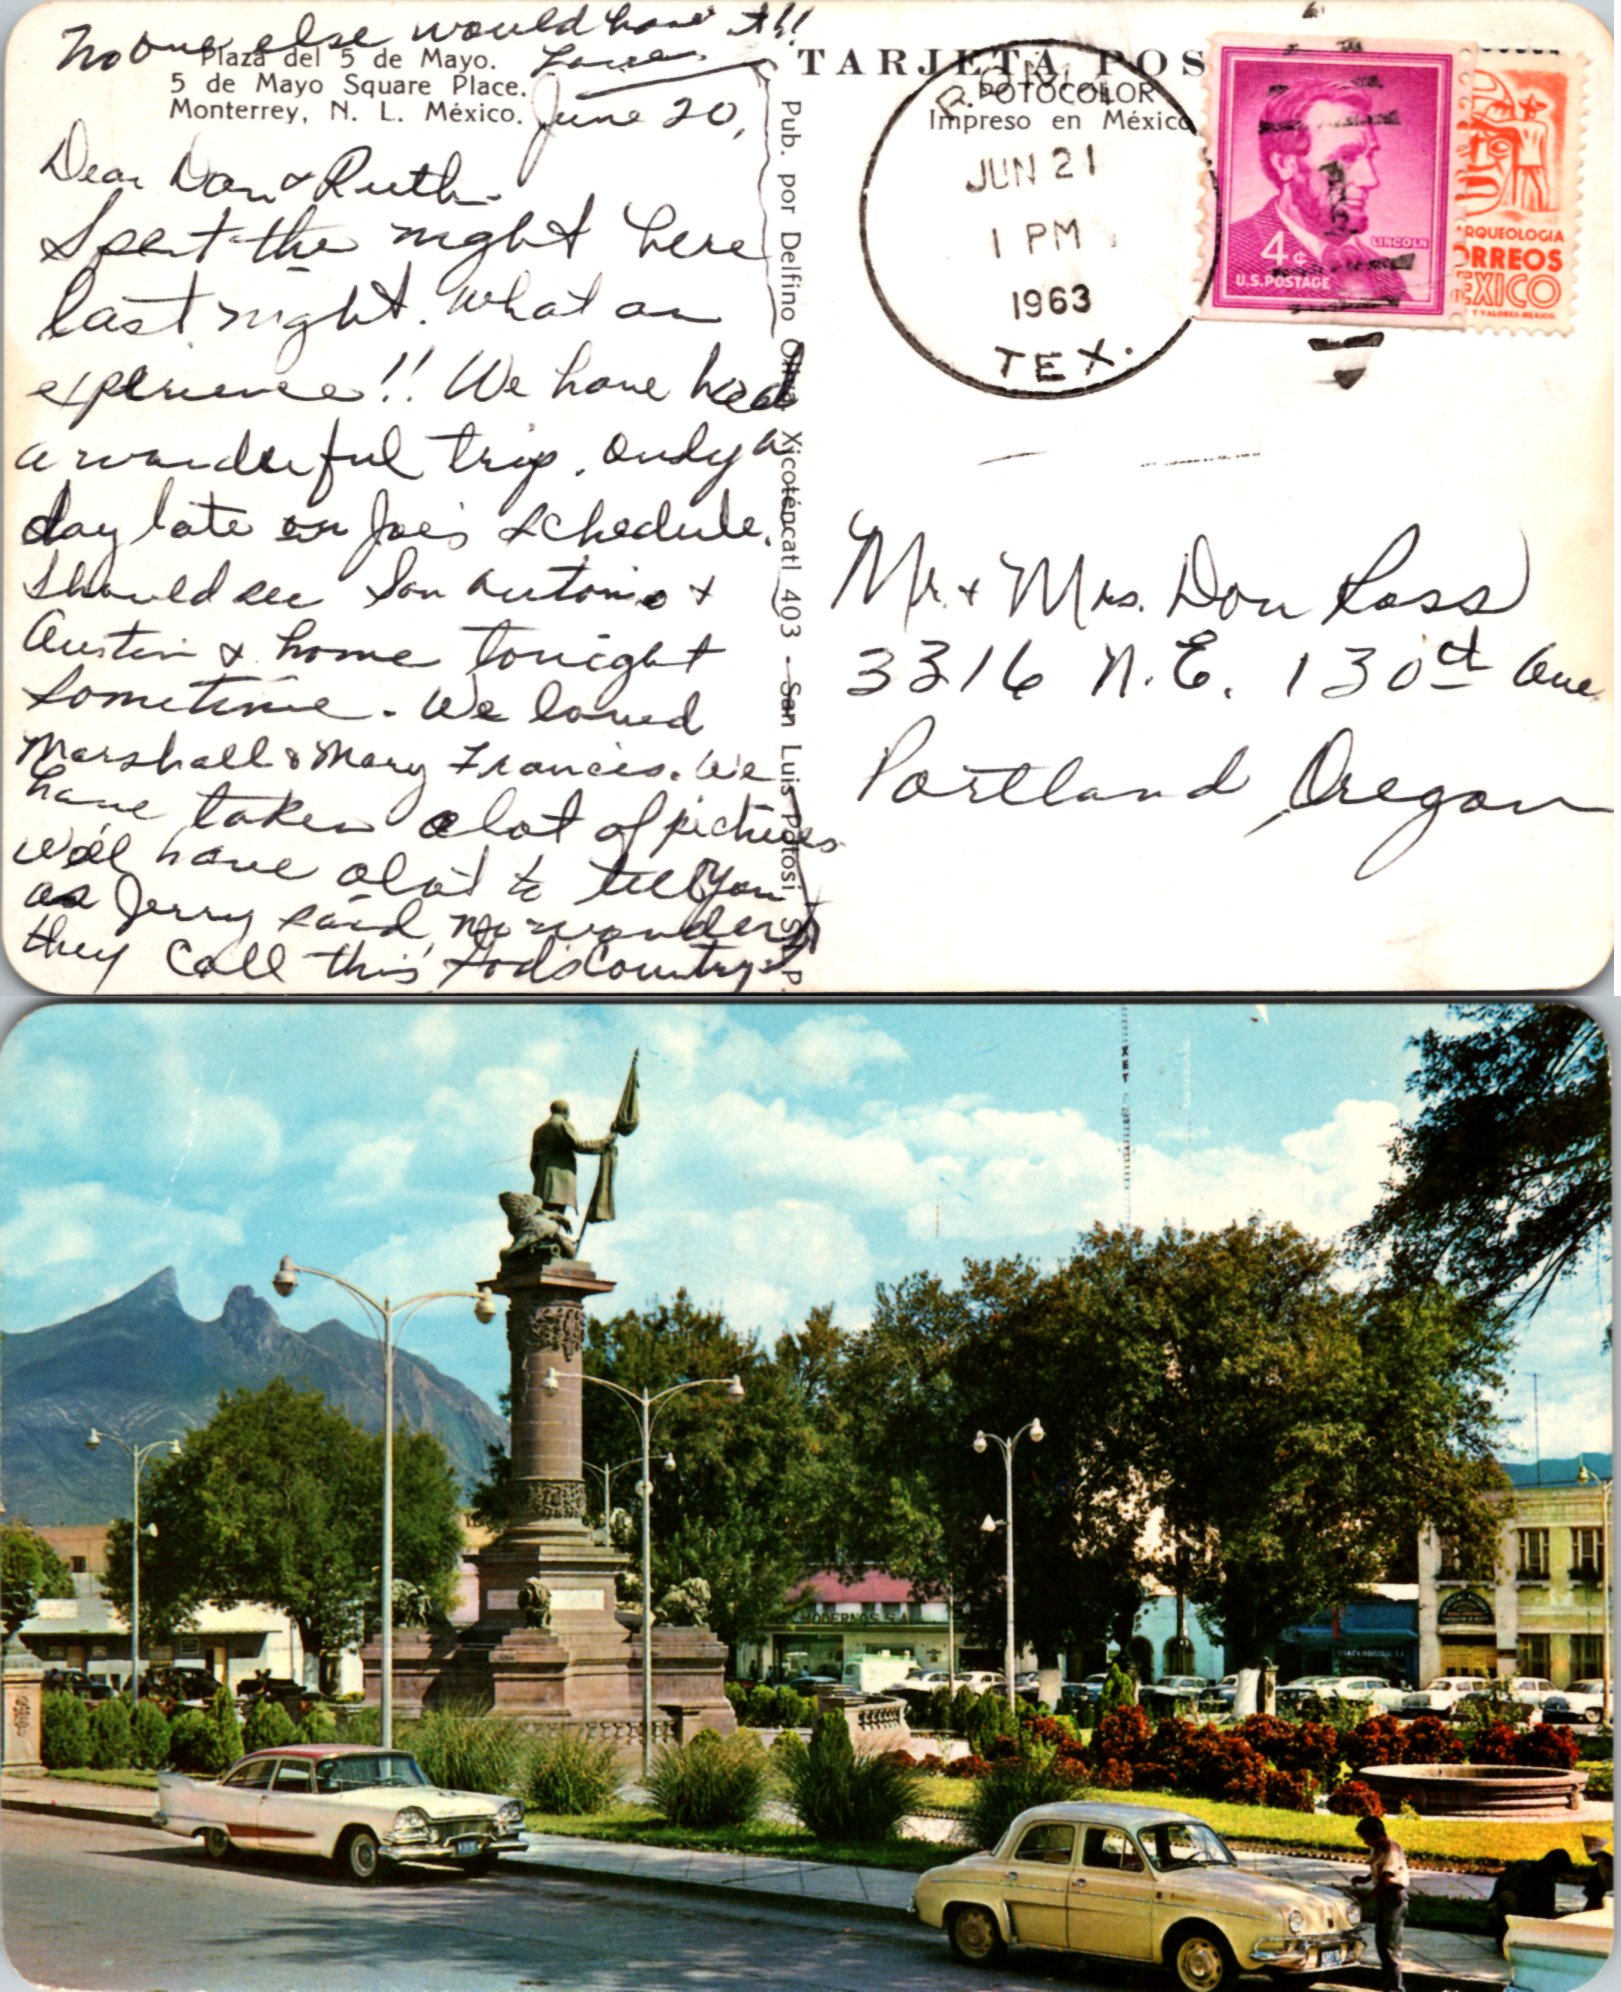 No one else would have it!!
Plaza del 5 de Mayo.
5 de Mayo Square Place.
Monterrey, N. L. México.
June 20,
Dear Don & Ruth-
Spent the night here
last night. What an
experience!! We have had
a wonderful trip. Only a
day late on Joe's schedule.
Should see San Antonio &
Austin & home tonight
sometime. We loved
Marshall & Mary Francis. We
have taken alot of pictures
we'll have alot to tell you
as Jerry said, no wonder
they call this God's Country -
Pub. por Delfino Oliva Xicoténcatl 403 - San Luis Potosí, S. L. P.
TARJETA POS
FOTOCOLOR
Impreso en México
JUN 21
1 PM
1963
TEX.
4¢
LINCOLN
U.S. POSTAGE
RQUEOLOGIA
ORREOS
EXICO
Y VALORES-MEXICO.
Mr. & Mrs. Don Ross
3316 N.E. 130th Ave
Portland, Oregon
XET
MODERNOS S.A.